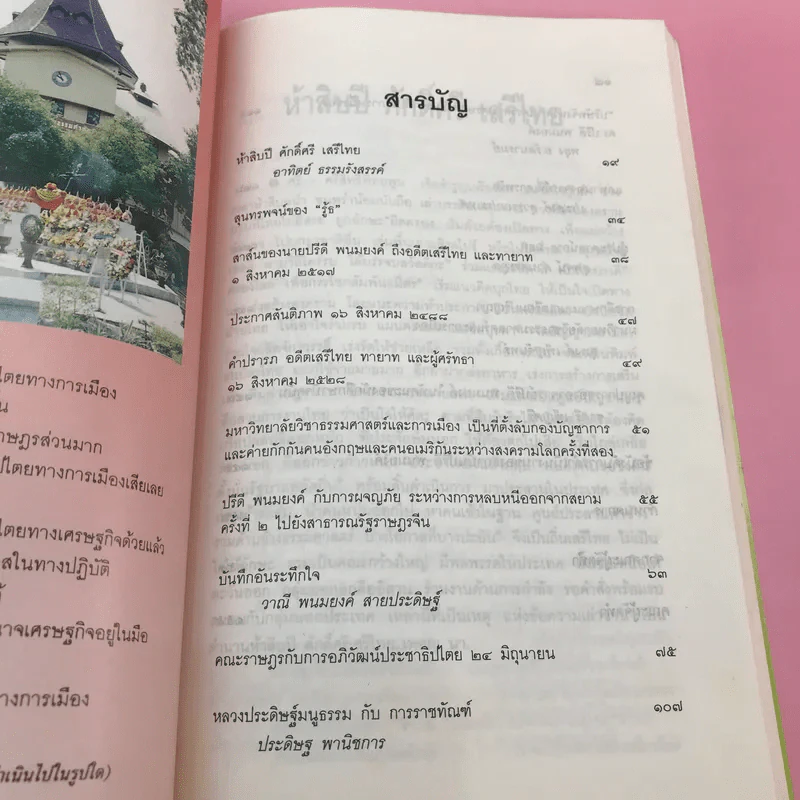 ไตยทางการเมือง
าษฎรส่วนมาก
ปไตยทางการเมืองเสียเลย
ไตยทางเศรษฐกิจด้วยแล้ว
สในทางปฏิบัติ
นาจเศรษฐกิจอยู่ในมือ
ทางการเมือง
ำเนินไปในรูปใด)
สารบัญ
ห้าสิบปี ศักดิ์ศรี เสรีไทย ๑๙
อาทิตย์ ธรรมรังสรรค์
สุนทรพจน์ของ "รู้ธ" ๓๔
สาส์นของนายปรีดี พนมยงค์ ถึงอดีตเสรีไทย และทายาท ๓๘
๑ สิงหาคม ๒๕๑๗
ประกาศสันติภาพ ๑๖ สิงหาคม ๒๔๘๘ ๔๗
คำปรารภ อดีตเสรีไทย ทายาท และผู้ศรัทธา ๔๙
๑๖ สิงหาคม ๒๕๒๘
มหาวิทยาลัยวิชาธรรมศาสตร์และการเมือง เป็นที่ตั้งลับกองบัญชาการ ๕๑
และค่ายกักกันคนอังกฤษและคนอเมริกันระหว่างสงครามโลกครั้งที่สอง
ปรีดี พนมยงค์ กับการผจญภัย ระหว่างการหลบหนีออกจากสยาม ๕๕
ครั้งที่ ๒ ไปยังสาธารณรัฐราษฎรจีน
บันทึกอันระทึกใจ ๖๓
วาณี พนมยงค์ สายประดิษฐ์
คณะราษฎรกับการอภิวัฒน์ประชาธิปไตย ๒๔ มิถุนายน ๗๕
หลวงประดิษฐ์มนูธรรม กับ การราชทัณฑ์ ๑๐๗
ประดิษฐ พานิชการ